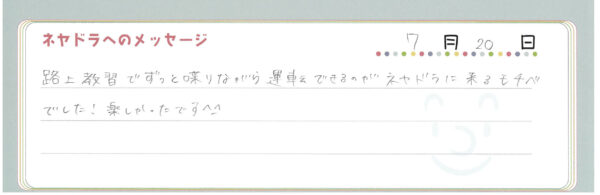 ネヤドラへのメッセージ
7月20日
路上教習でずっと喋りながら運転できるのがネヤドラに来るモチベ
でした！楽しかったです^^